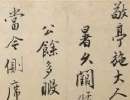 敬亭施大人
暑久闊
公餘多暇
當今側席